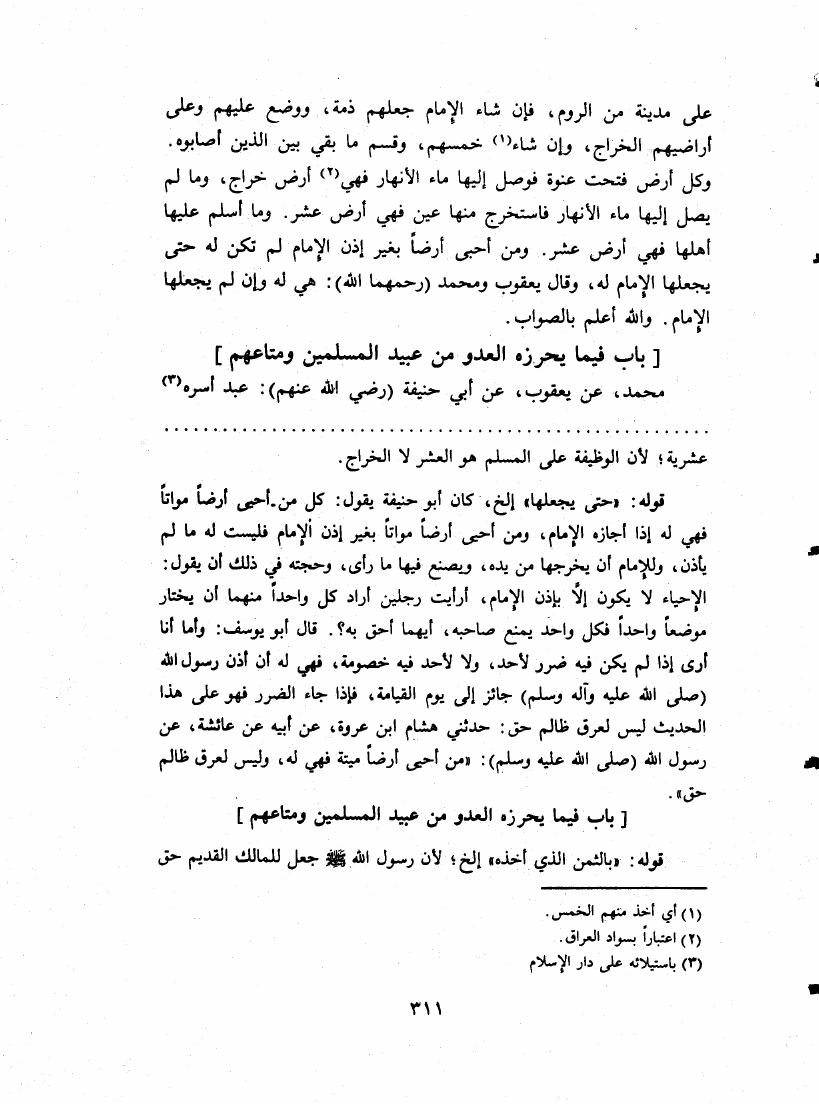 على مدينة من الروم، فإن شاء الإمام جعلهم ذمة، ووضع عليهم وعلى
أراضيهم الخراج، وإن شاء(١) خمسهم، وقسم ما بقي بين الذين أصابوه.
وكل أرض فتحت عنوة فوصل إليها ماء الأنهار فهي(٢) أرض خراج، وما لم
يصل إليها ماء الأنهار فاستخرج منها عين فهي أرض عشر. وما أسلم عليها
أهلها فهي أرض عشر. ومن أحيى أرضاً بغير إذن الإمام لم تكن له حتى
يجعلها الإمام له، وقال يعقوب ومحمد (رحمهما الله): هي له وإن لم يجعلها
الإمام. والله أعلم بالصواب.
[ باب فيما يحرزه العدو من عبيد المسلمين ومتاعهم ]
محمد، عن يعقوب، عن أبي حنيفة (رضي الله عنهم): عبد أسره(٣)
عشرية؛ لأن الوظيفة على المسلم هو العشر لا الخراج.
قوله: «حتى يجعلها» إلخ، كان أبو حنيفة يقول: كل من أحيى أرضاً مواتاً
فهي له إذا أجازه الإمام، ومن أحيى أرضاً مواتاً بغير إذن الإمام فليست له ما لم
يأذن، وللإمام أن يخرجها من يده، ويصنع فيها ما رأى، وحجته في ذلك أن يقول:
الإحياء لا يكون إلاَّ بإذن الإمام، أرأيت رجلين أراد كل واحداً منهما أن يختار
موضعاً واحداً فكل واحد يمنع صاحبه، أيهما أحق به؟. قال أبو يوسف: وأما أنا
أرى إذا لم يكن فيه ضرر لأحد، ولا لأحد فيه خصومة، فهي له أن أذن رسول الله
(صلى الله عليه وآله وسلم) جائز إلى يوم القيامة، فإذا جاء الضرر فهو على هذا
الحديث ليس لعرق ظالم حق: حدثني هشام ابن عروة، عن أبيه عن عائشة، عن
رسول الله (صلى الله عليه وسلم): «من أحيى أرضاً ميتة فهي له، وليس لعرق ظالم
حق».
[ باب فيما يحرزه العدو من عبيد المسلمين ومتاعهم ]
قوله: «بالثمن الذي أخذه» إلخ؛ لأن رسول الله ﷺ جعل للمالك القديم حق
(١) أي أخذ منهم الخمس.
(٢) اعتباراً بسواد العراق.
(٣) باستيلائه على دار الإسلام
٣١١